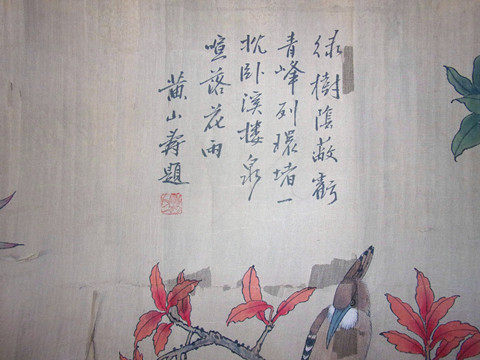 綠樹陰蔽虧
青峰列環堵一
枕卧溪樓泉
喧落花雨
黄山壽題